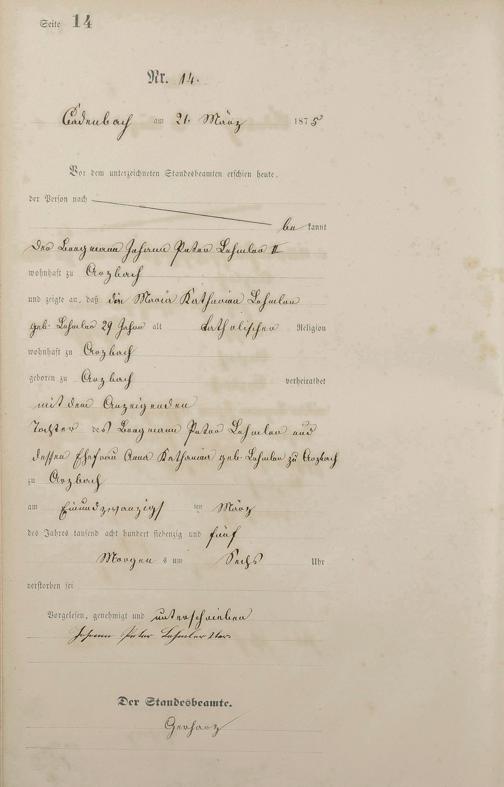 Seite 14
Nr. 14.
Cadenbach am 21. März 1875
Vor dem unterzeichneten Standesbeamten erschien heute,
der Person nach
be kannt
der Bergmann Johann Peter Lehmler II
wohnhaft zu Arzbach
und zeigte an, daß die Maria Katharina Lehmler
geb. Lehmler 29 Jahre alt katholischer Religion
wohnhaft zu Arzbach
geboren zu Arzbach verheirathet
mit dem Anzeigenden
Tochter des Bergmann Peter Lehmler und
dessen Ehefrau Anna Katharina geb. Lehmler zu Arzbach
zu Arzbach
am Einundzwanzigst ten März
des Jahres tausend acht hundert siebenzig und fünf
Morgen s um Sechs Uhr
verstorben sei
Vorgelesen, genehmigt und unterschrieben
Johann Peter Lehmler
Der Standesbeamte.
Gerharz